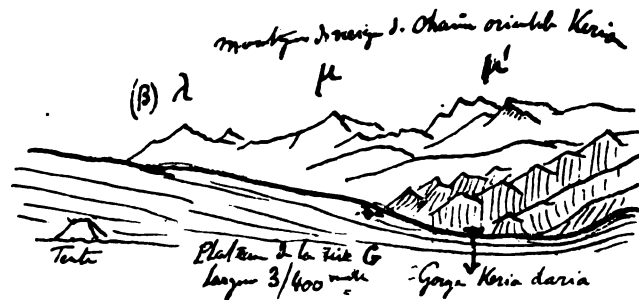 montagnes de neige d. chaine orientale Keria
(β) λ μ μ'
Tente
Plateau de la
G
Largeur 3/400
Gorge Keria daria